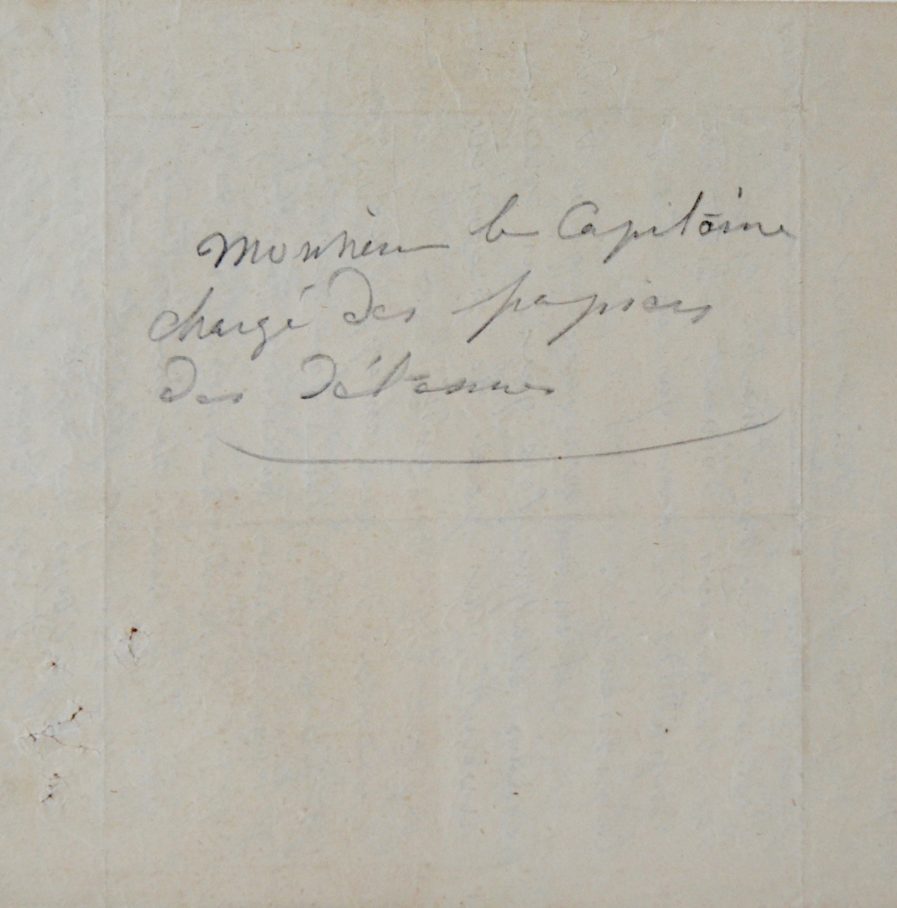 Monsieur le Capitaine
chargé des papiers
des détenues